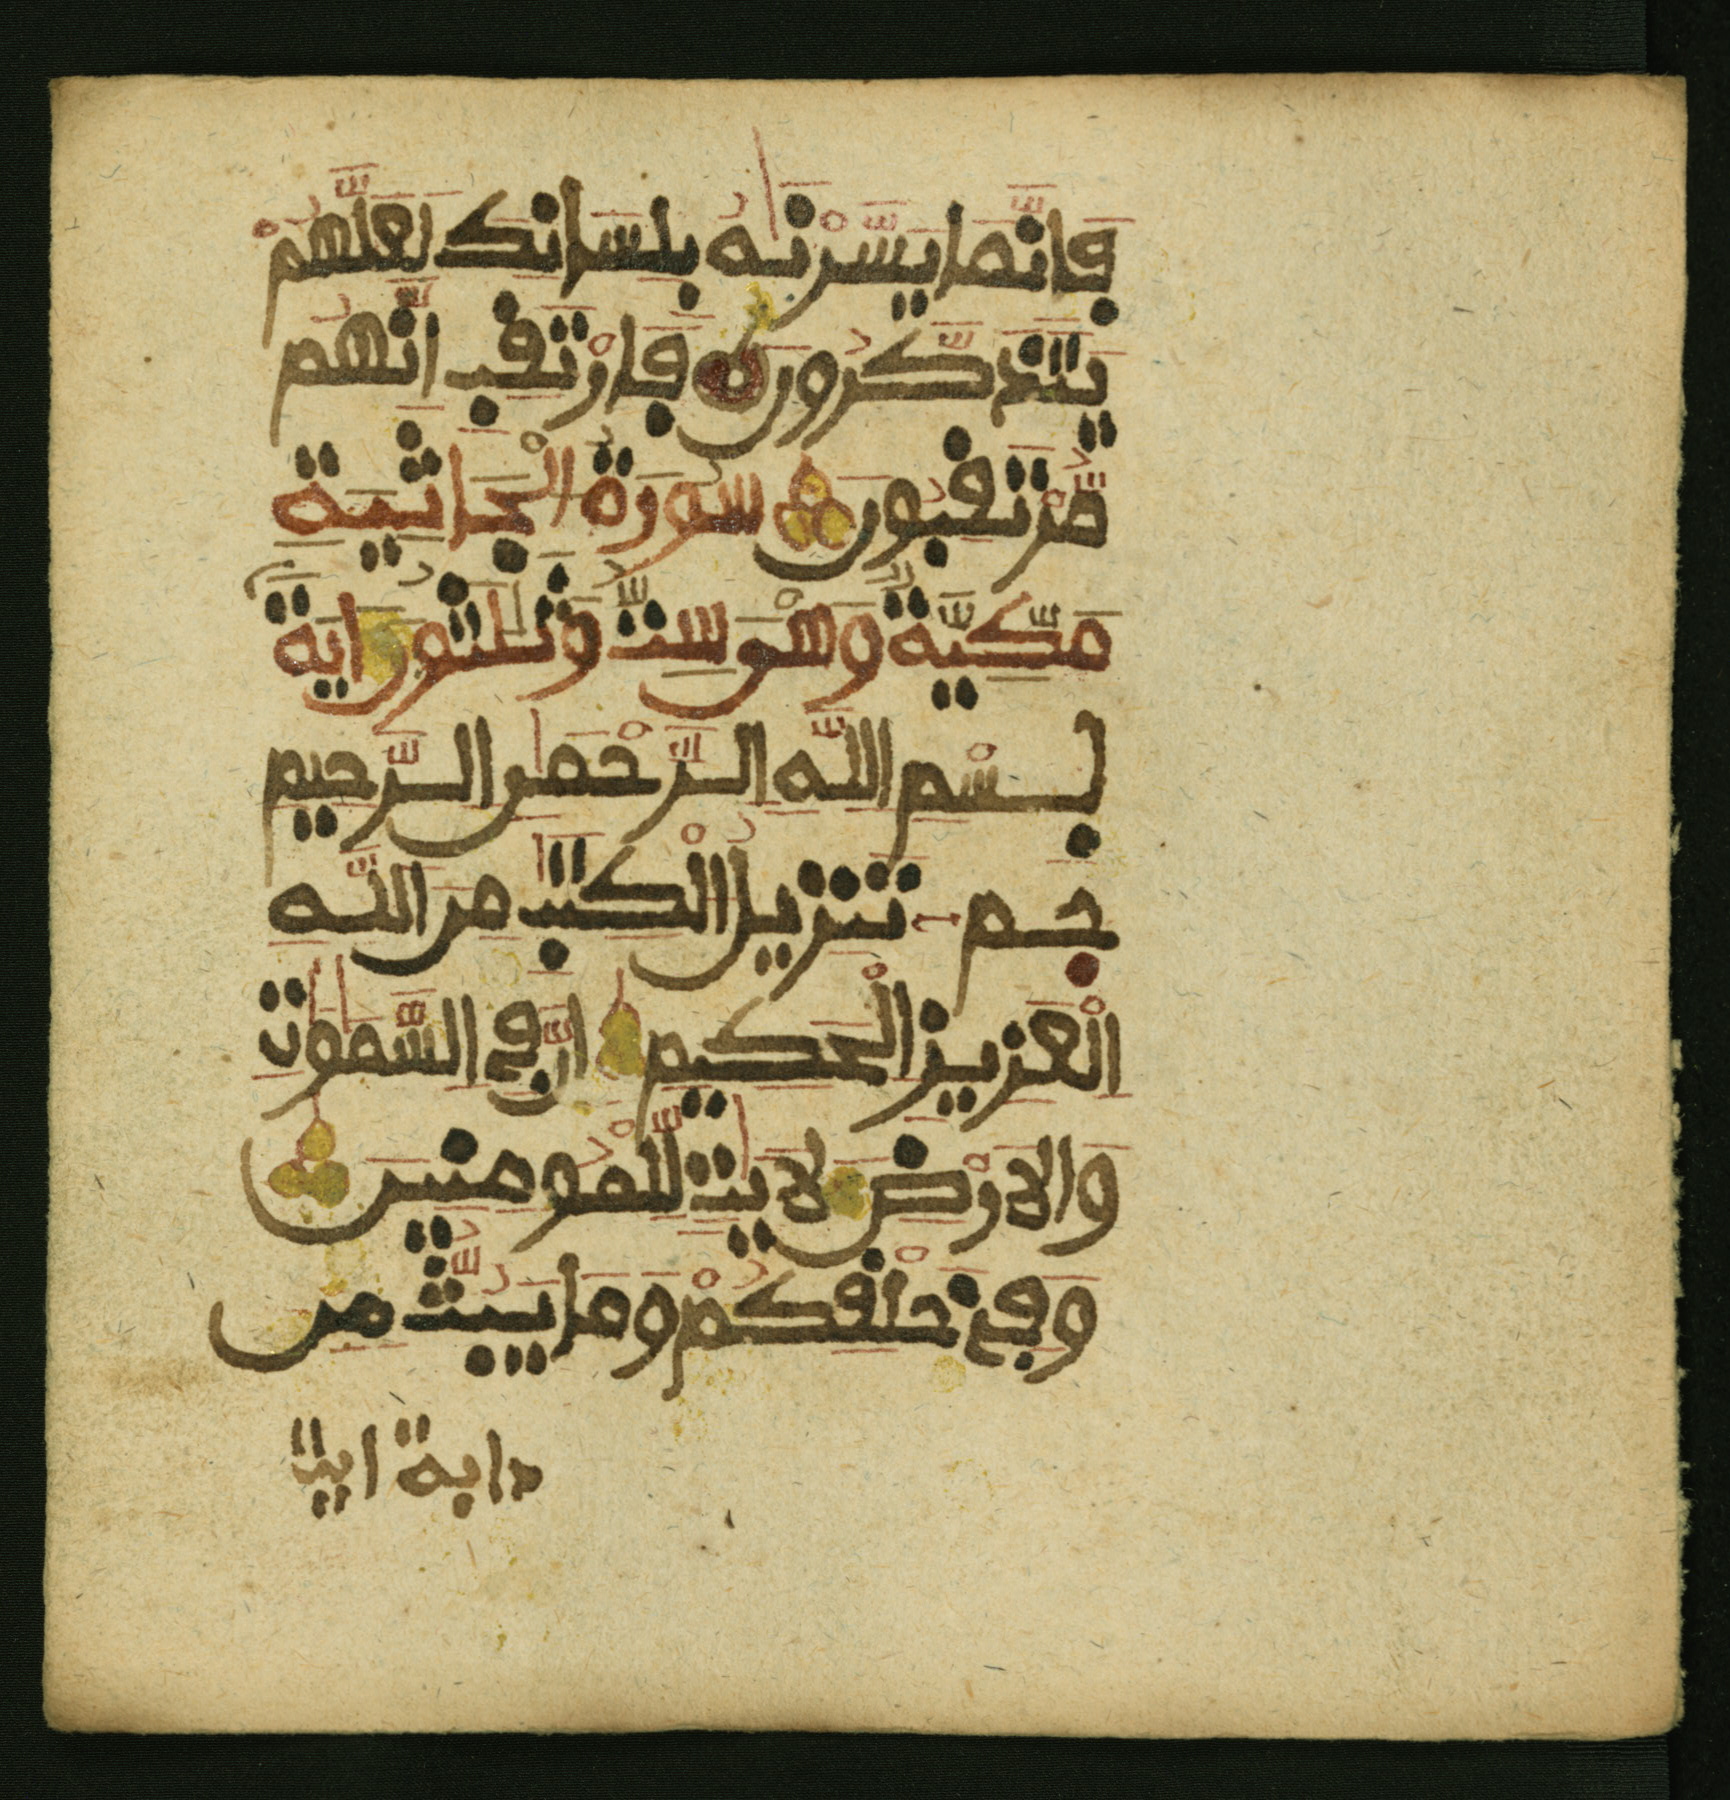 فَإِنَّمَا يَسَّرْنَٰهُ بِلِسَانِكَ لَعَلَّهُمْ
يَتَذَكَّرُونَ فَارْتَقِبِ انَّهُم
مُّرْتَقِبُونَ سُورَةُ الْجَاثِيَةِ
مَكِّيَّةٌ وَهْىَ سِتٌّ وَثَلَٰثُونَ ايَةً
بِسْمِ اللَّهِ الرَّحْمَٰنِ الرَّحِيمِ
حَمِ تَنزِيلُ الْكِتَٰبِ مِنَ اللَّهِ
الْعَزِيزِ الْحَكِيمِ إِنَّ فِى السَّمَٰوَٰتِ
وَالارْضِ لَايَٰتٍ لِّلْمُومِنِينَ
وَفِى خَلْقِكُمْ وَمَا يَبُثُّ مِن
دابة ايت